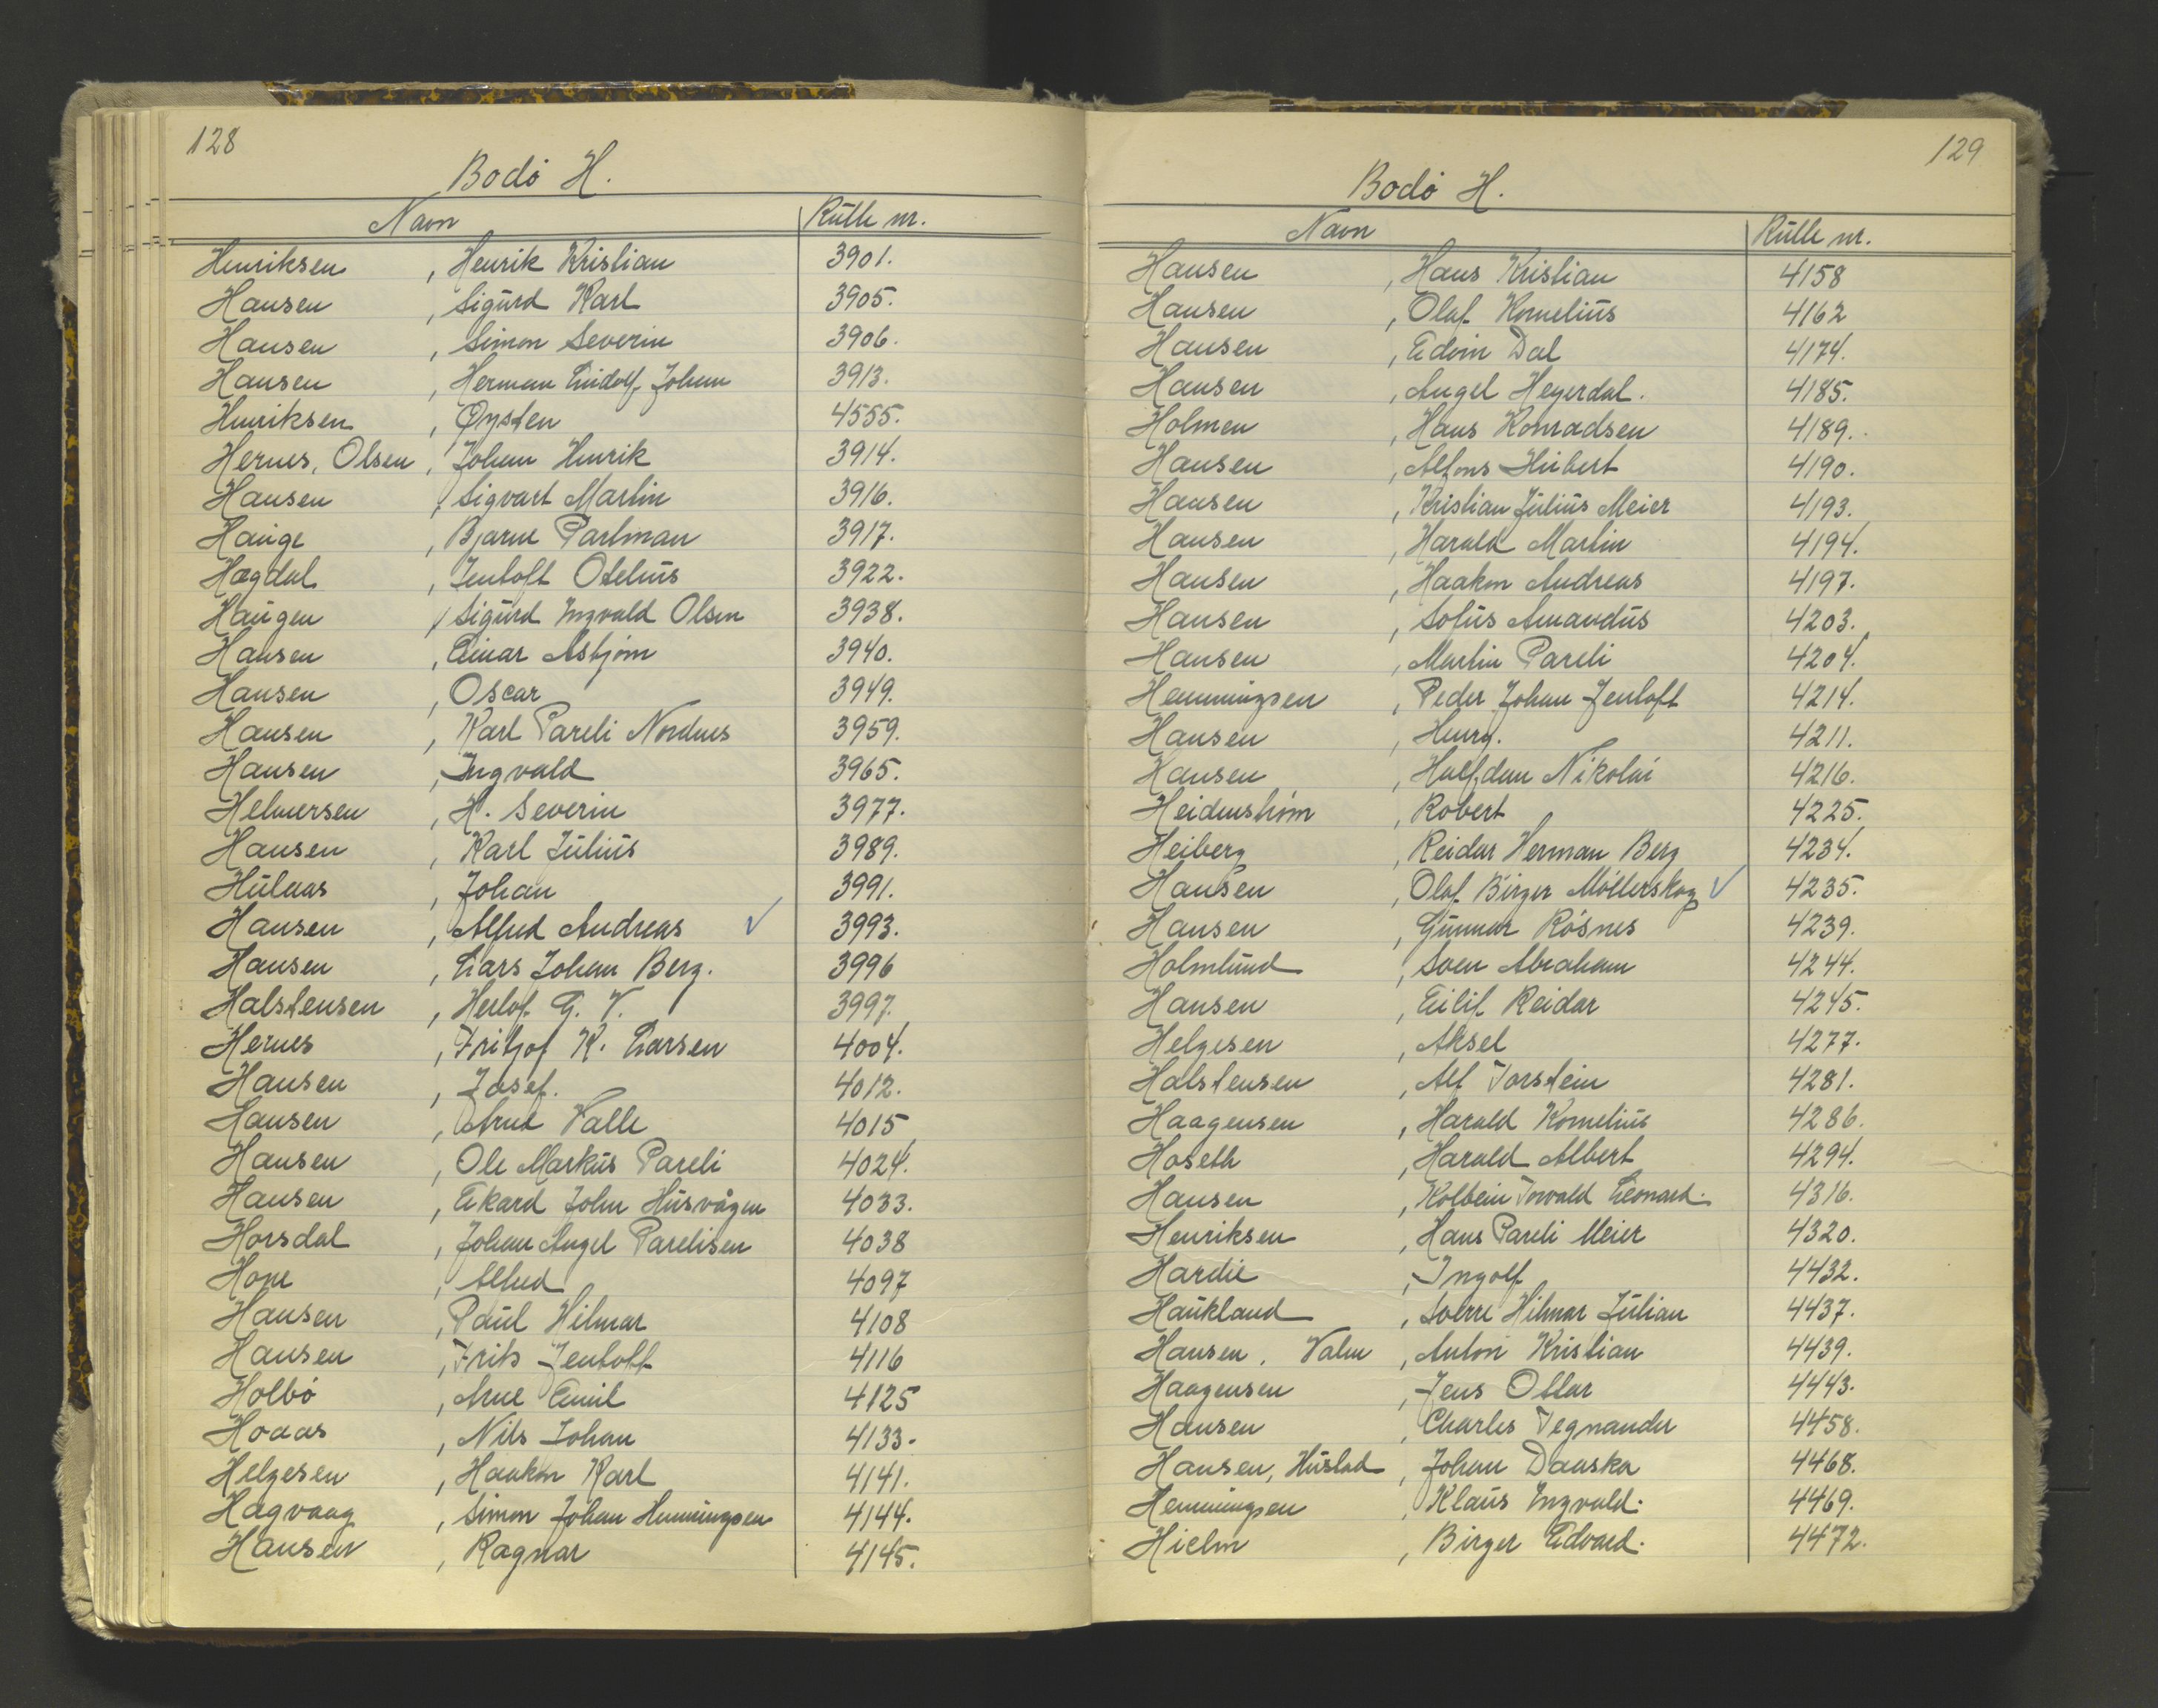 128
Bodø H.
Navn Rulle nr.
Henriksen , Henrik Kristian 3901.
Hansen , Sigurd Karl 3905.
Hansen , Simon Severin 3906.
Hansen , Herman Lindolf Johan 3913.
Henriksen , Øysten 4555.
Hernes, Olsen , Johan Henrik 3914.
Hansen , Sigvart Martin 3916.
Hauge , Bjarne Partman 3917.
Hægdal , Jentoft Otelius 3922.
Haugen , Sigurd Ingvald Olsen 3938.
Hansen , Einar Asbjørn 3940.
Hansen , Oscar 3949.
Hansen , Karl Pareli Nordnes 3959.
Hansen , Ingvald 3965.
Helmersen , H. Severin 3977.
Hansen , Karl Julius 3989.
Hulaas , Johan 3991.
Hansen , Alfred Andreas ✓ 3993.
Hansen , Lars Johan Berg. 3996
Halstensen , Herlof G. V. 3997.
Hernes , Fritjof K. Larsen 4004.
Hansen , Josef. 4012.
Hansen , Arne Valle 4015
Hansen , Ole Markus Pareli 4024.
Hansen , Ekard John Husvågen 4033.
Horsdal , Johan Angel Parelisen 4038
Hope , Alfred 4097
Hansen , Paul Hilmar 4108
Hansen , Frits Jentoft 4116
Holbø , Arne Emil 4125
Hoaas , Nils Johan 4133.
Helgesen , Haakon Karl 4141.
Hagvaag , Simon Johan Henningsen 4144.
Hansen , Ragnar 4145.
129
Bodø H.
Navn Rulle nr.
Hansen , Hans Kristian 4158
Hansen , Olaf Kornelius 4162
Hansen , Edvin Dal 4174.
Hansen , Angel Heyerdal. 4185.
Holmen , Hans Konradsen 4189.
Hansen , Alfons Hubert 4190.
Hansen , Kristian Julius Meier 4193.
Hansen , Harald Martin 4194.
Hansen , Haakon Andreas 4197.
Hansen , Sofus Amandus 4203.
Hansen , Martin Pareli 4204.
Hemmingsen , Peder Johan Jentoft 4214.
Hansen , Henry. 4211.
Hansen , Halfdan Nikolai 4216.
Heidenstrøm , Robert 4225.
Heiberg , Reidar Herman Berg 4234.
Hansen , Olaf Birger Møllerskog ✓ 4235.
Hansen , Gunnar Røsnes 4239.
Holmlund , Sven Abraham 4244.
Hansen , Eilif Reidar 4245.
Helgesen , Aksel 4277.
Halstensen , Alf Torstein 4281.
Haagensen , Harald Kornelius 4286.
Hoseth , Harald Albert 4294.
Hansen , Kolbein Torvald Leonard. 4316.
Henriksen , Hans Pareli Meier 4320.
Hardie , Ingolf 4432.
Haukland , Sverre Hilmar Julian 4437.
Hansen, Valen , Anton Kristian 4439.
Haagensen , Jens Ottar 4443.
Hansen , Charles Tegnander 4458.
Hansen, Hustad , Johan Danska 4468.
Hemmingsen , Klaus Ingvald. 4469.
Hielm , Birger Edvard. 4472.